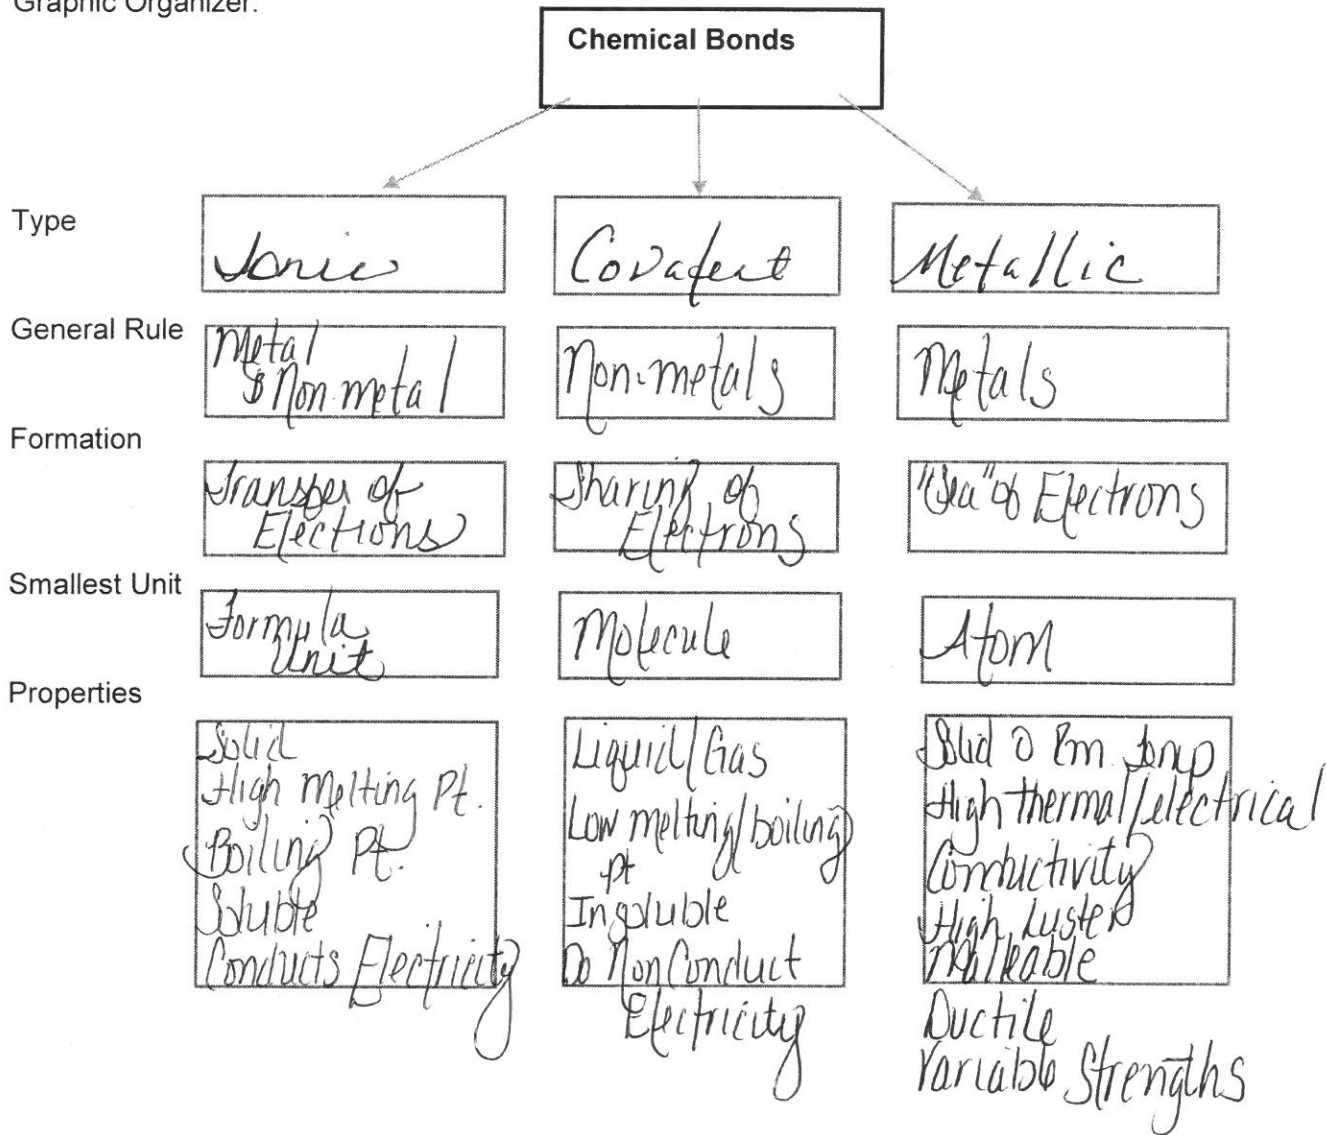 Graphic Organizer:
Chemical Bonds
Type
Ionic
Covalent
Metallic
General Rule
Metal
& Non-metal
Non-metals
Metals
Formation
Transfer of
Electrons
Sharing of
Electrons
"Sea" of Electrons
Smallest Unit
Formula
Unit
Molecule
Atom
Properties
Solid
High Melting Pt.
Boiling Pt.
Soluble
Conducts Electricity
Liquid/Gas
Low melting/boiling
pt
Insoluble
Do Non Conduct
Electricity
Solid @ Rm. Temp
High thermal/electrical
Conductivity
High Luster
Malleable
Ductile
Variable Strengths